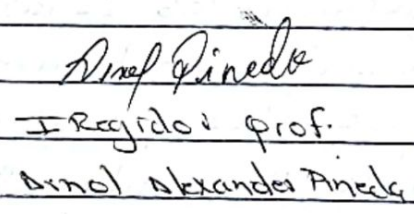 Arnol Pineda
I Regidor prof.
Arnol Alexander Pineda